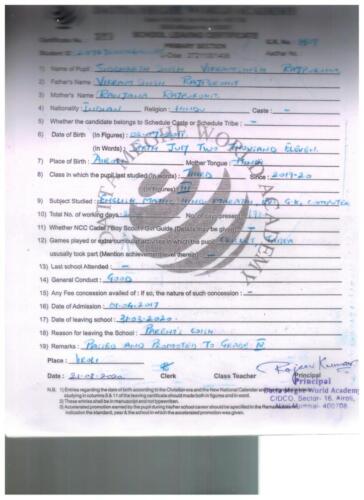 SCHOOL LEAVING CERTIFICATE
PRIMARY SECTION
Certificate No. G.R. No.
Student ID:
1) Name of Pupil : SIDDHARTH SINGH VIKRAM SINGH RAJPUROHIT
2) Father's Name : VIKRAM SINGH RAJPUROHIT
3) Mother's Name : RANJANA RAJPUROHIT
4) Nationality : INDIAN Religion : HINDU Caste : -
5) Whether the candidate belongs to Schedule Caste or Schedule Tribe : -
6) Date of Birth (In Figures) :
(In Words) : JULY TWO THOUSAND ELEVEN
7) Place of Birth : Mother Tongue : HINDI
8) Class in which the pupil last studied (In Words) : THIRD Since : 2019-20
(In Figures) : III
9) Subject Studied : ENGLISH, MATHS, HINDI, MARATHI, G.K, COMPUTER
10) Total No. of working days : No. of days present :
11) Whether NCC Cadet / Boy Scout / Girl Guide (Details may be given) : -
12) Games played or extra curricular activities in which the pupil
usually took part (Mention achievement level therein) : -
13) Last school Attended : -
14) General Conduct : GOOD
15) Any Fee concession availed of : If so, the nature of such concession : -
16) Date of Admission : 01.04.2017
17) Date of leaving school : 31.03.2020
18) Reason for leaving the School : PARENT'S WISH
19) Remarks : PASSED AND PROMOTED TO GRADE IV
Place : AIROLI
Date : 21.08.2020 Clerk Class Teacher Principal
Rajeev Kumar
Principal
Datta Meghe World Academy
CIDCO, Sector- 16, Airoli,
Navi Mumbai- 400708
N.B. 1) Entries regarding the date of birth according to the Christian era and the New National Calendar and
studying in columns 5 & 11 of the leaving certificate should made both in figures and in word.
2) These entries shall be in manuscript and not typewritten.
DATTA MEGHE WORLD ACADEMY